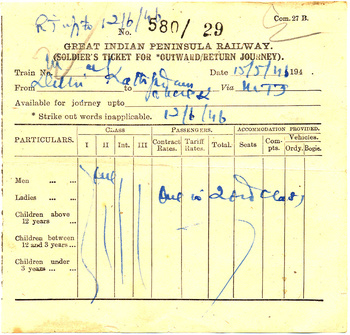 R J upto 12/6/46
Com. 27 B.
No. 580/29
GREAT INDIAN PENINSULA RAILWAY.
(SOLDIER'S TICKET FOR *OUTWARD/RETURN JOURNEY).
Train No. Date 15/5/46 194 .
From Delhi to Kathgodam Via
Available for journey upto
* Strike out words inapplicable. 12/6/46
PARTICULARS. CLASS PASSENGERS. ACCOMMODATION PROVIDED.
I II Int. III Contract Rates. Tariff Rates. Total. Seats Compts. Vehicles.
Ordy. Bogie.
Men ... ... One
Ladies ... ... One in 2nd class
Children above 12 years ...
Children between 12 and 3 years ...
Children under 3 years ... ...